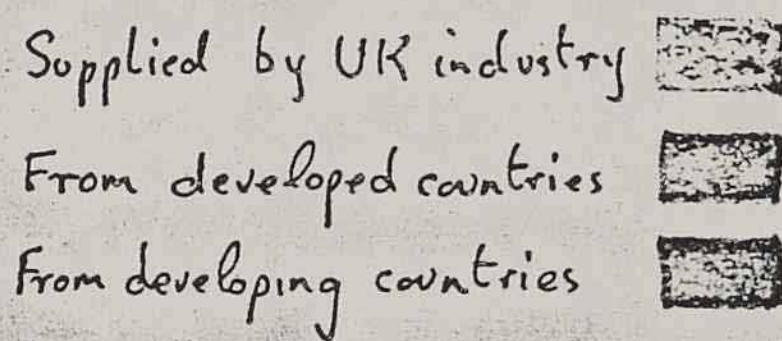 Supplied by UK industry
From developed countries
From developing countries